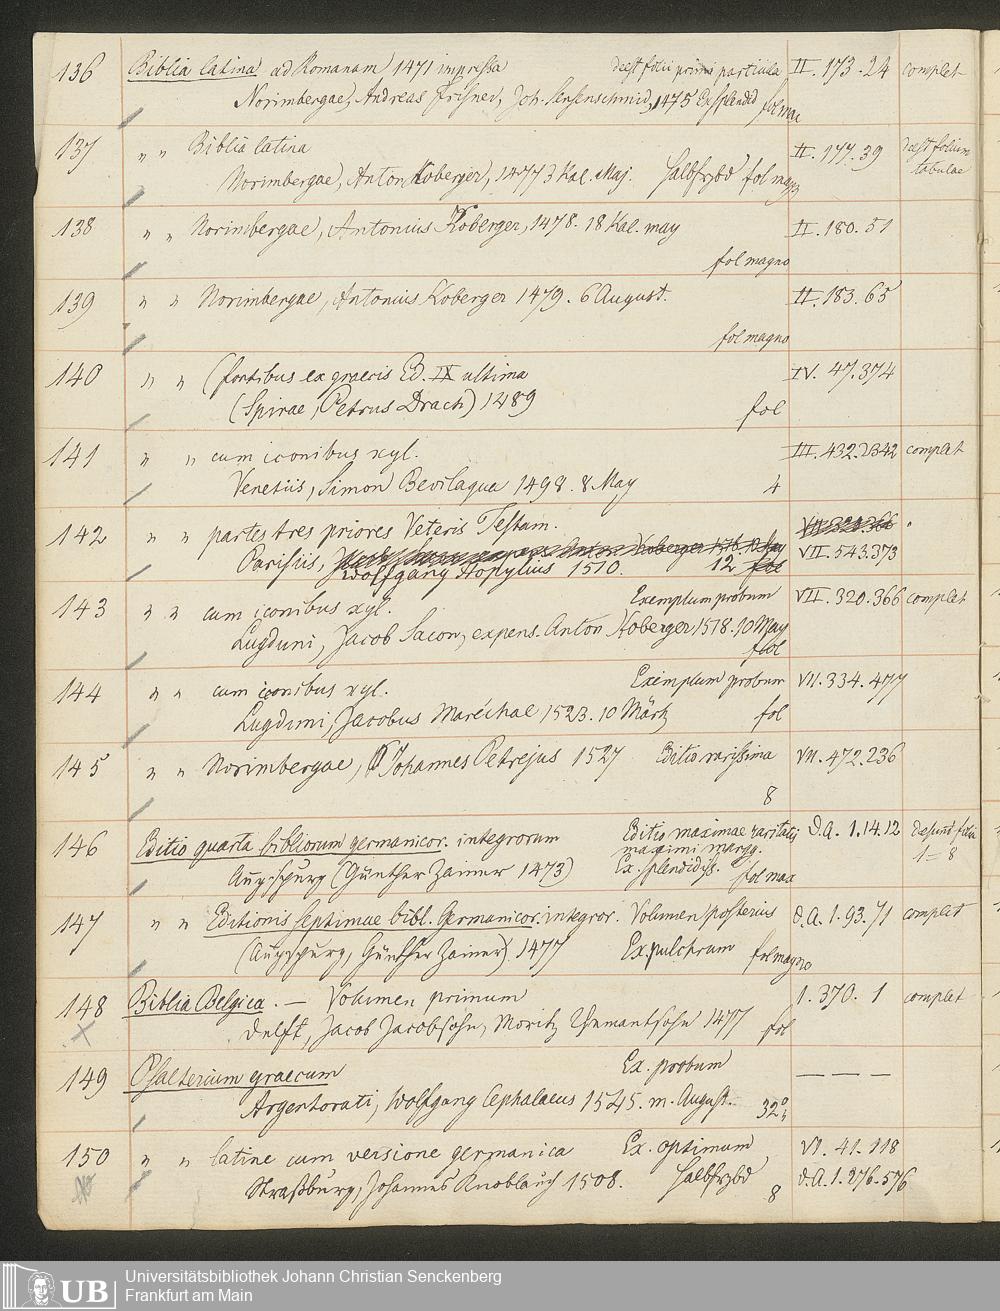 136 Biblia latina ad Romanam 1471 impressa deest folii primi particula II. 173. 24 complet
Norimbergae, Andreas Frisner, Joh. Sensenschmid, 1475 Ex splendid fol max
137 " " Biblia latina II. 177. 39 deest folium
Norimbergae, Anton Koberger, 1477 3 Kal. Maj. Halbfrzbd fol magn tabulae
138 " " Norimbergae, Antonius Koberger, 1478. 18 Kal. may II. 180. 51
fol magno
139 " " Norimbergae, Antonius Koberger 1479. 6 August. II. 183. 65
fol magno
140 " " (fontibus ex graecis Ed. IX ultima IV. 47. 374
(Spirae, Petrus Drach) 1489 fol
141 " " cum iconibus xyl. III. 432. 2342 complet
Venetiis, Simon Bevilaqua 1498. 8 May 4
142 " " partes tres priores Veteris Testam. VII 320. 366
Parisiis, Anton Koberger 1518. 10 May VII. 543. 373
Wolfgang Hopylius 1510. 12 fol
143 " " cum iconibus xyl. Exemplum probum VII. 320. 366 complet
Lugduni, Jacob Sacon, expens. Anton Koberger 1518. 10 May
fol
144 " " cum iconibus xyl. Exemplum probum VII. 334. 477
Lugduni, Jacobus Maréchal 1523. 10 März fol
145 " " Norimbergae, Johannes Petrejus 1527 Editio rarissima VII. 472. 236
8
146 Editio quarta bibliorum germanicor. integrorum Editio maximae raritatis D.A. 1. 14. 12 desunt folia
maximi margg. 1=8
Augspurg (Günther Zainer 1473) Ex. splendidiss. fol max
147 " " Editionis septimae bibl. Germanicor. integror. Volumen posterius d.A. 1. 93. 71 complet
(Augspurg, Günther Zainer) 1477 Ex. pulchrum fol magno
148 Biblia Belgica. — Volumen primum 1. 370. 1 complet
Delft, Jacob Jacobsohn, Moritz Yemantsohn 1477 fol
149 Psalterium graecum Ex. probum — — —
Argentorati, Wolfgang Cephalaeus 1545. m. August. 32°
150 " " latine cum versione germanica Ex. optimum VI. 41. 118
Straßburg, Johannes Knoblauch 1508. Halbfrzbd 8 d.A. 1. 276. 576
UB
Universitätsbibliothek Johann Christian Senckenberg
Frankfurt am Main